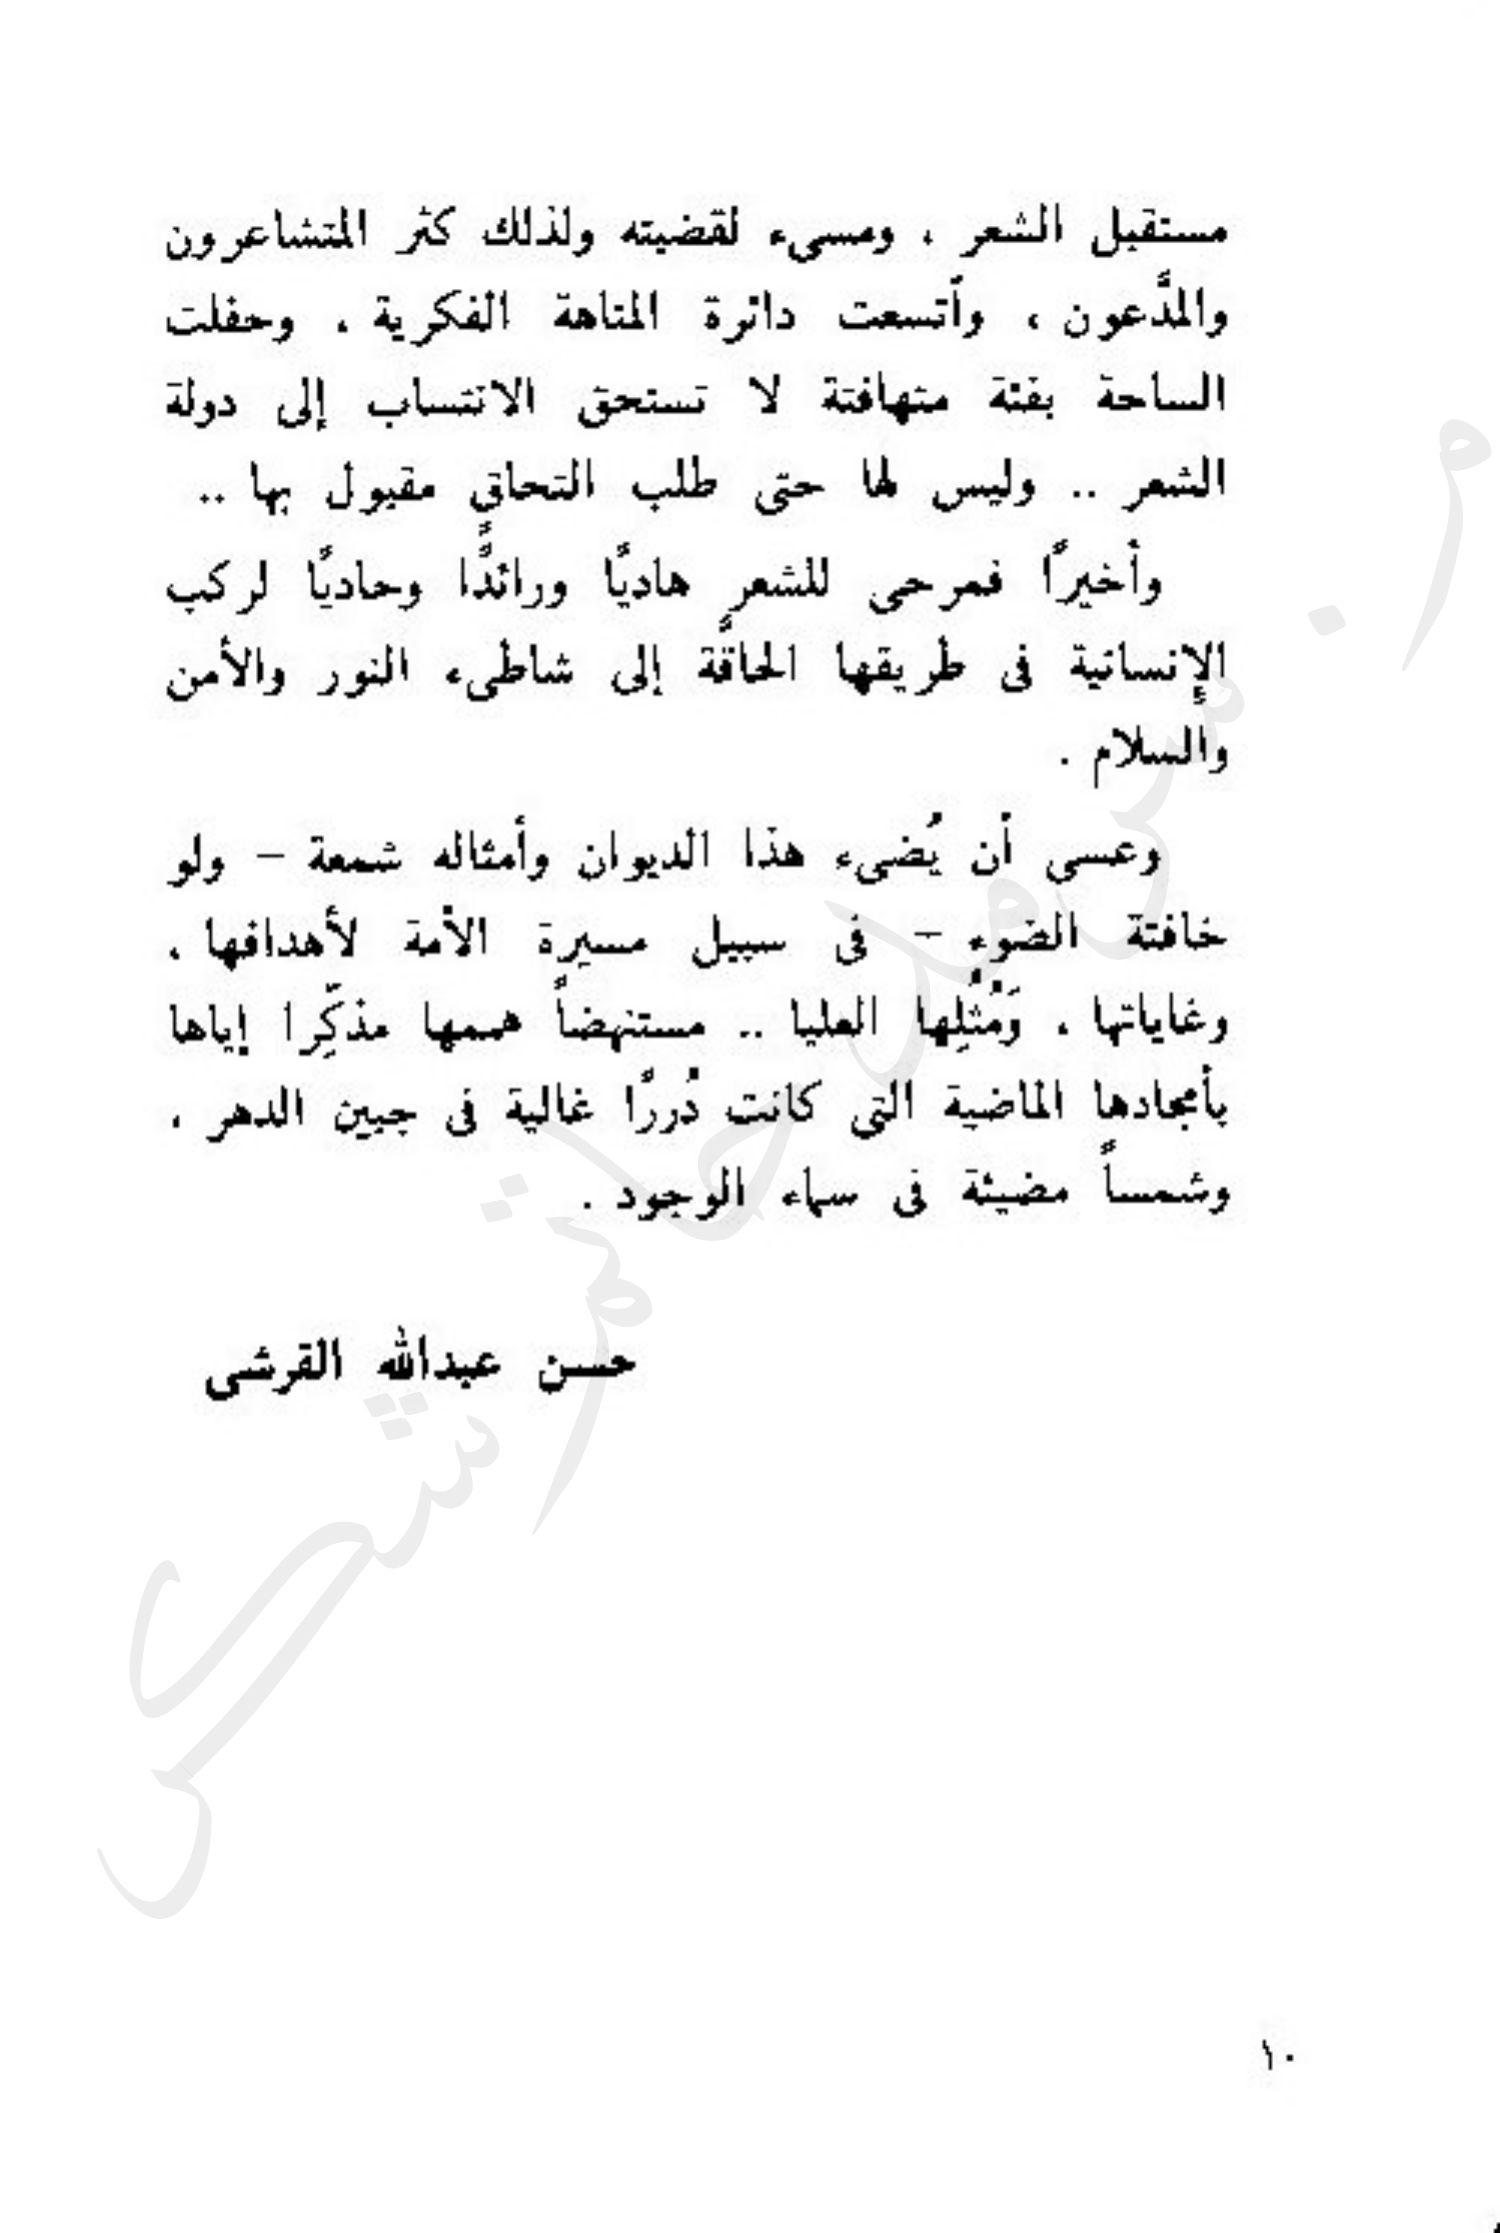 مستقبل الشعر ، ومسىء لقضيته ولذلك كثر المتشاعرون
والمدَّعون ، وأتسعت دائرة المتاهة الفكرية ، وحفلت
الساحة بفئة متهافتة لا تستحق الانتساب إلى دولة
الشعر .. وليس لها حتى طلب التحاقٍ مقبول بها ..
وأخيرًا فمرحى للشعر هاديًا ورائدًا وحاديًا لركب
الإنسانية فى طريقها الحاقة إلى شاطىء النور والأمن
والسلام .
وعسى أن يُضىء هذا الديوان وأمثاله شمعة – ولو
خافتة الضوء – فى سبيل مسيرة الأمة لأهدافها ،
وغاياتها ، وَمُثُلِها العليا .. مستنهضاً هممها مذكِّرا إياها
بأمجادها الماضية التى كانت دُررًا غالية فى جبين الدهر ،
وشمساً مضيئة فى سماء الوجود .
حسن عبدالله القرشى
١٠